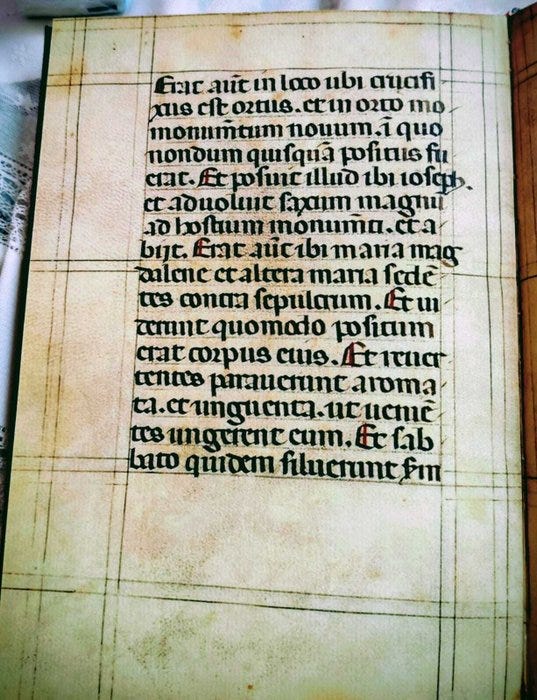 Erat aut̄ in loco ubi crucifi
xus est ortus. et in orto mo
monum̄tum nouum. ī quo
nondum quisquā positus fu
erat. Et posuit illud ibi ioseph.
et aduoluit saxum magnū
ad hostium monum̄ti. et a
bijt. Erat aut̄ ibi maria mag
dalene et altera maria sedē
tes contra sepulcrum. Et ui
derunt quomodo positum
erat corpus eius. Et reuer
tentes parauerunt aroma
ta. et unguenta. ut ueniē
tes ungerent eum. Et sab
bato quidem siluerunt s̄m